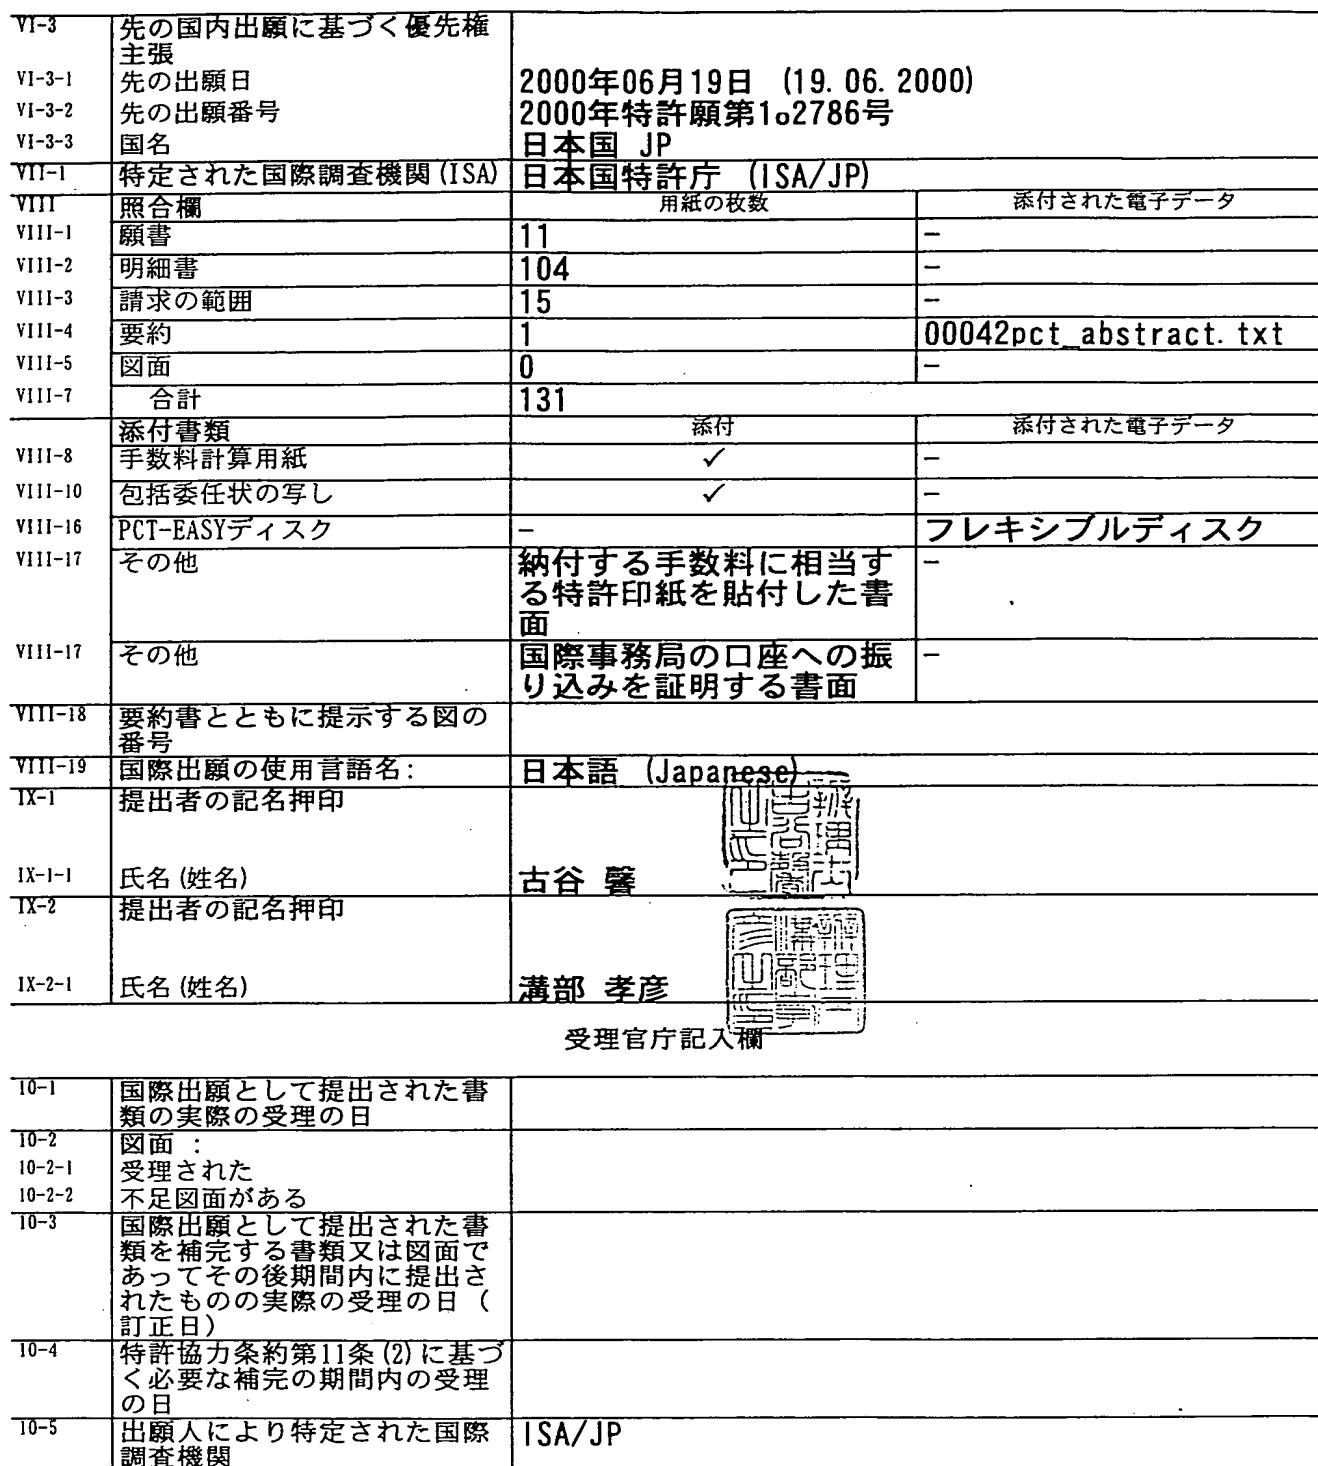 VI-3 先の国内出願に基づく優先権
主張
VI-3-1 先の出願日 2000年06月19日 (19.06.2000)
VI-3-2 先の出願番号 2000年特許願第1o2786号
VI-3-3 国名 日本国 JP
VII-1 特定された国際調査機関(ISA) 日本国特許庁 (ISA/JP)
VIII 照合欄 用紙の枚数 添付された電子データ
VIII-1 願書 11 -
VIII-2 明細書 104 -
VIII-3 請求の範囲 15 -
VIII-4 要約 1 00042pct_abstract.txt
VIII-5 図面 0 -
VIII-7 合計 131
添付書類 添付 添付された電子データ
VIII-8 手数料計算用紙 ✓ -
VIII-10 包括委任状の写し ✓ -
VIII-16 PCT-EASYディスク - フレキシブルディスク
VIII-17 その他 納付する手数料に相当す -
る特許印紙を貼付した書
面
VIII-17 その他 国際事務局の口座への振 -
り込みを証明する書面
VIII-18 要約書とともに提示する図の
番号
VIII-19 国際出願の使用言語名: 日本語 (Japanese)
IX-1 提出者の記名押印
IX-1-1 氏名(姓名) 古谷 馨
IX-2 提出者の記名押印
IX-2-1 氏名(姓名) 溝部 孝彦
受理官庁記入欄
10-1 国際出願として提出された書
類の実際の受理の日
10-2 図面 :
10-2-1 受理された
10-2-2 不足図面がある
10-3 国際出願として提出された書
類を補完する書類又は図面で
あってその後期間内に提出さ
れたものの実際の受理の日 (
訂正日)
10-4 特許協力条約第11条(2)に基づ
く必要な補完の期間内の受理
の日
10-5 出願人により特定された国際 ISA/JP
調査機関